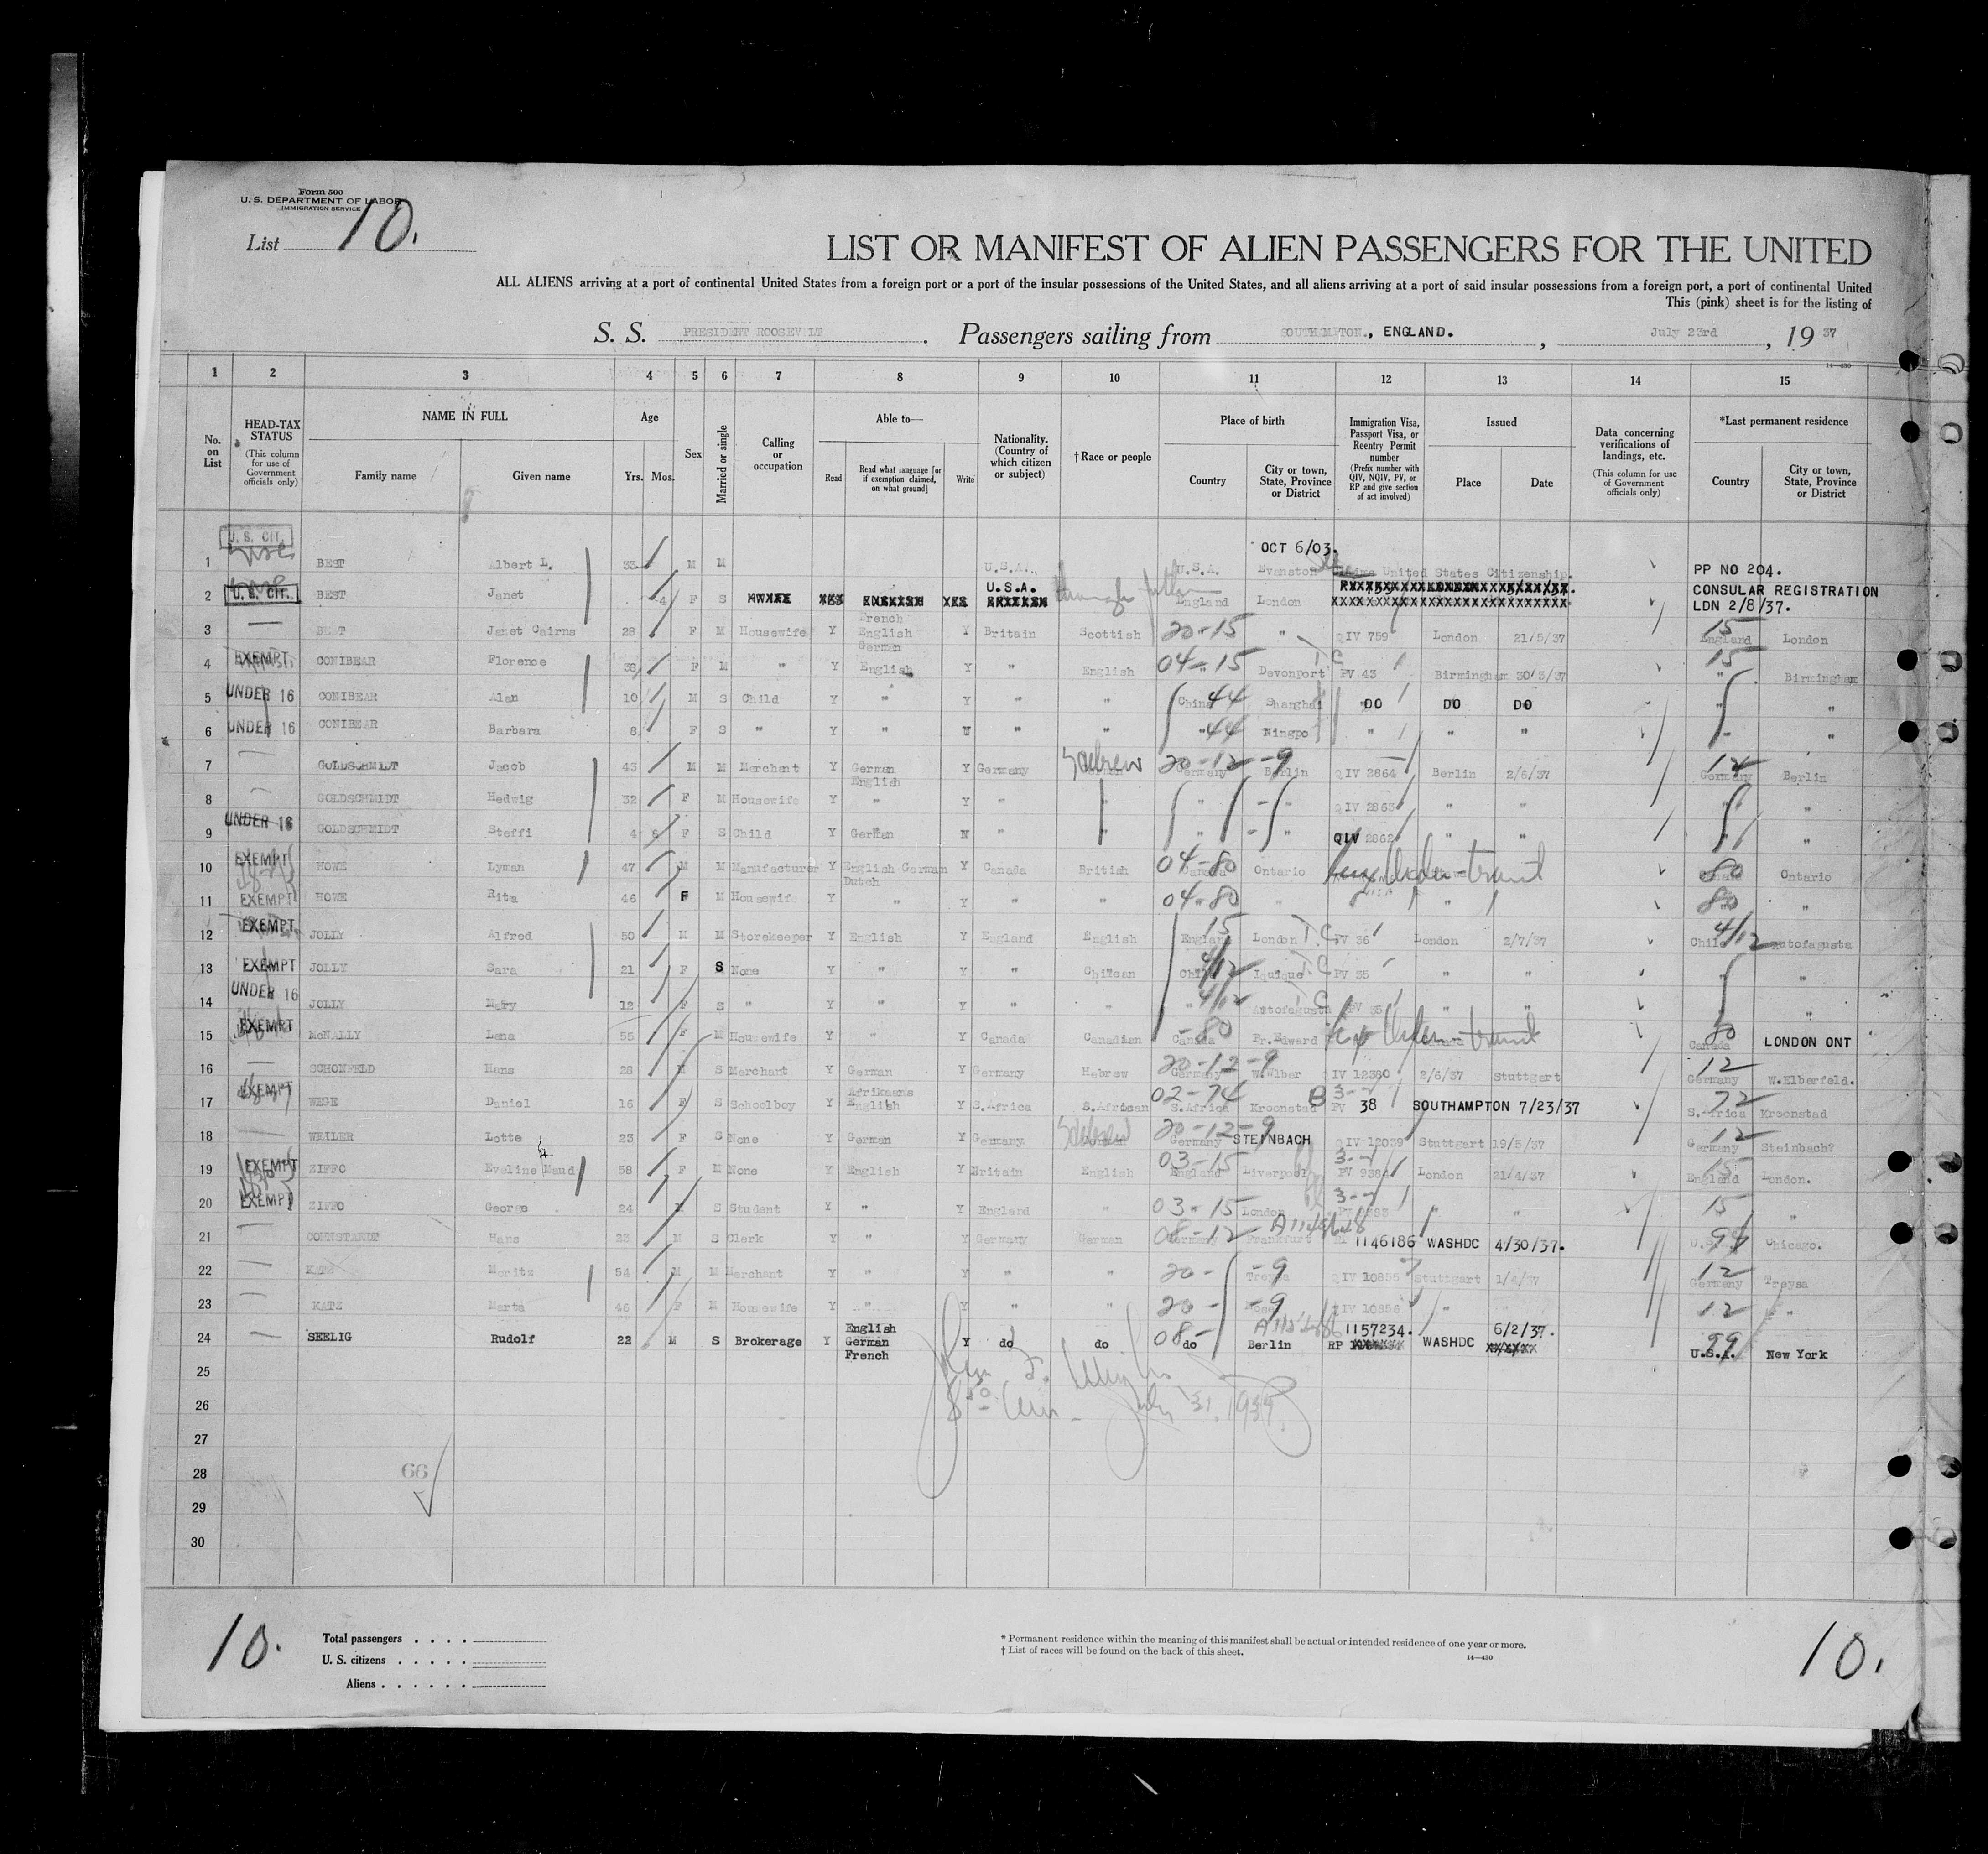 Form 500
U. S. DEPARTMENT OF LABOR
IMMIGRATION SERVICE
List 10.
LIST OR MANIFEST OF ALIEN PASSENGERS FOR THE UNITED
ALL ALIENS arriving at a port of continental United States from a foreign port or a port of the insular possessions of the United States, and all aliens arriving at a port of said insular possessions from a foreign port, a port of continental United
This (pink) sheet is for the listing of
S. S. PRESIDENT ROOSEVELT. Passengers sailing from SOUTHAMPTON., ENGLAND., July 23rd, 19 37
14—430
1 2 3 4 5 6 7 8 9 10 11 12 13 14 15
No. on List
HEAD-TAX STATUS (This column for use of Government officials only)
NAME IN FULL Family name Given name
Age Yrs. Mos.
Sex
Married or single
Calling or occupation
Able to— Read Read what language [or if exemption claimed, on what ground] Write
Nationality. (Country of which citizen or subject)
†Race or people
Place of birth Country City or town, State, Province or District
Immigration Visa, Passport Visa, or Reentry Permit number (Prefix number with QIV, NQIV, PV, or RP and give section of act involved)
Issued Place Date
Data concerning verifications of landings, etc. (This column for use of Government officials only)
*Last permanent residence Country City or town, State, Province or District
U. S. CIT. OCT 6/03.
1 BEST Albert L. 33 M M U.S.A. U.S.A. Evanston United States Citizenship. PP NO 204.
2 U. S. CIT. BEST Janet 4 F S U.S.A. England London CONSULAR REGISTRATION
LDN 2/8/37.
3 BEST Janet Cairns 28 F M Housewife Y French English German Y Britain Scottish 20-15 " QIV 759 London 21/5/37 15 England London
4 EXEMPT CONIBEAR Florence 38 F M " Y English Y " English 04-15 Devonport T.C PV 43 Birmingham 30/3/37 15 " Birmingham
5 UNDER 16 CONIBEAR Alan 10 M S Child Y " Y " " China 44 Shanghai DO DO DO " "
6 UNDER 16 CONIBEAR Barbara 8 F S " Y " " " " 44 Ningpo " " " "
7 GOLDSCHMIDT Jacob 43 M M Merchant Y German English Y Germany Hebrew 20-12-9 Germany Berlin QIV 2864 Berlin 2/6/37 12 Germany Berlin
8 GOLDSCHMIDT Hedwig 32 F M Housewife Y " Y " " " QIV 2863 " " " "
9 UNDER 16 GOLDSCHMIDT Steffi 4 6 F S Child Y German N " " " QIV 2862 " " " "
10 EXEMPT HOWE Lyman 47 M M Manufacturer Y English German Dutch Y Canada British 04-80 Canada Ontario transit 80 Canada Ontario
11 EXEMPT HOWE Rita 46 F M Housewife Y " Y " " 04-80 " " 80 "
12 EXEMPT JOLLY Alfred 50 M M Storekeeper Y English Y England English 15 England London T.C. PV 36 London 2/7/37 Chile 4/12 Autofagusta
13 EXEMPT JOLLY Sara 21 F S None Y " Y " Chilean Chile 4/12 Iquique T.C PV 35 " " "
14 UNDER 16 JOLLY Mary 12 F S " Y " Y " " " 4/12 Aztofagusta T C PV 35 " " "
15 EXEMPT McNALLY Lena 55 F M Housewife Y " Y Canada Canadian -80 Canada Pr. Edward transit 80 Canada LONDON ONT
16 SCHONFELD Hans 28 M S Merchant Y German Y Germany Hebrew 20-12-9 Germany W.Wlber IV 12380 2/6/37 Stuttgart 12 Germany W.Elberfeld.
17 EXEMPT WEBE Daniel 16 S Schoolboy Y Afrikaans English Y S.Africa S.African 02-74 S.Africa Kroonstad B 3-2 PV 38 SOUTHAMPTON 7/23/37 72 S.Africa Kroonstad
18 WEILER Lotte 23 F S None Y German Y Germany Hebrew 20-12-9 Germany STEINBACH QIV 12039 Stuttgart 19/5/37 12 Germany Steinbach?
19 EXEMPT ZIFFO Eveline Maud 58 F M None Y English Y Britain English 03-15 England Liverpool 3-2 PV 9384 London 21/4/37 15 England London.
20 EXEMPT ZIFFO George 24 M S Student Y " Y England " 03-15 London 3-2 " " 15 "
21 COHNSTAEDT Hans 23 M S Clerk Y " Y Germany German 08-12 Germany Frankfurt 1146186 WASHDC 4/30/37. 99 Chicago.
22 KATZ Moritz 54 M M Merchant Y " Y " " 20- -9 Treysa QIV 10855 Stuttgart 1/4/37 12 Germany Treysa
23 KATZ Marta 46 F M Housewife Y " Y " " 20- -9 QIV 10856 " 12 " "
24 SEELIG Rudolf 22 M S Brokerage Y English German French Y do do 08- do Berlin RP 1157234. WASHDC 6/2/37. 99 U.S.A. New York
25
26 July 31. 1937
27
28 66
29
30
10.
Total passengers . . . .
U. S. citizens . . . . .
Aliens . . . . . .
* Permanent residence within the meaning of this manifest shall be actual or intended residence of one year or more.
† List of races will be found on the back of this sheet.
14—430
10.